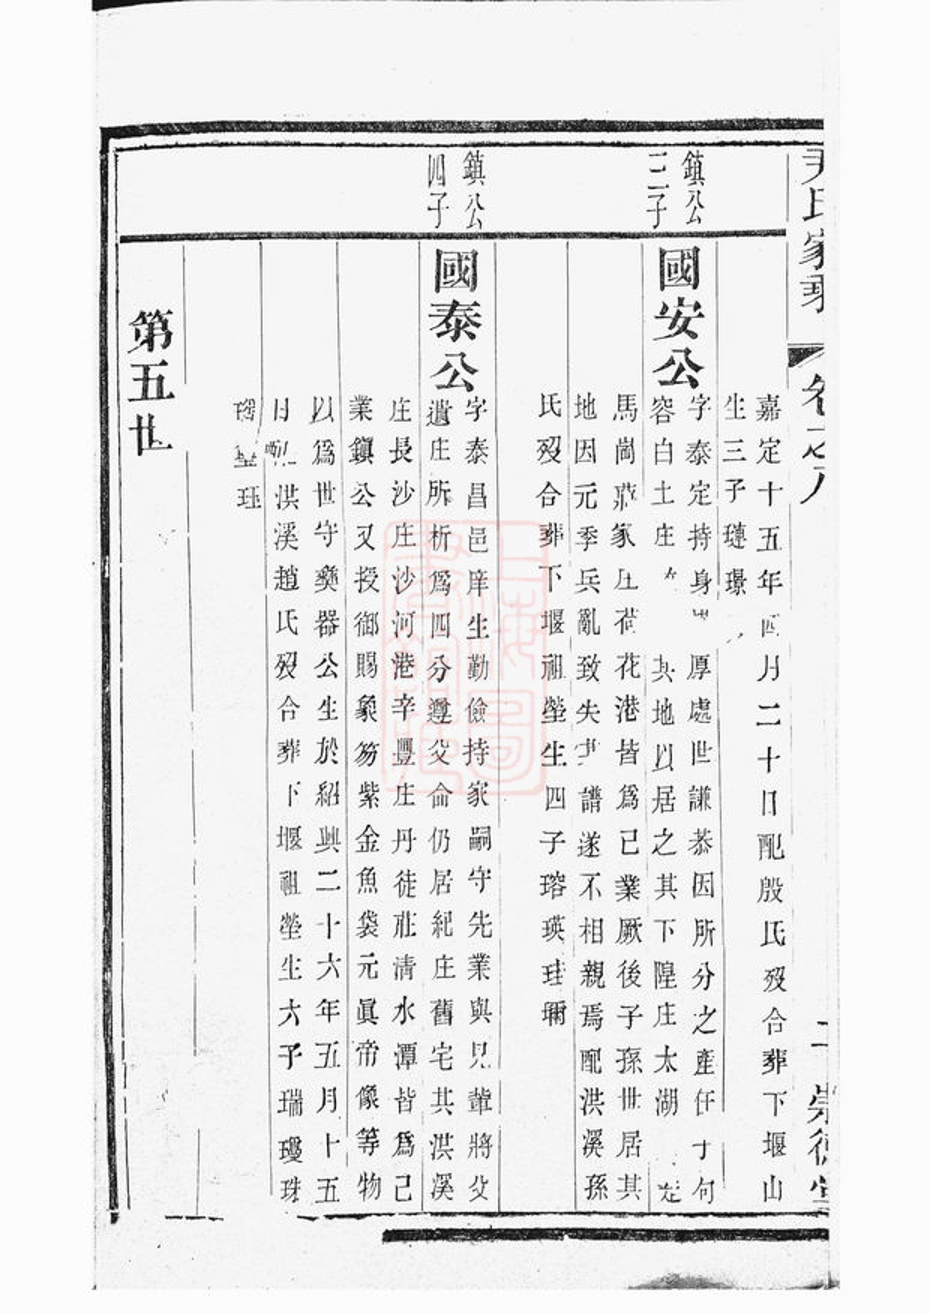 尹氏家乘
卷之八
崇德堂
嘉定十五年四月二十日配殷氏歿合葬下堰山
生三子璉璟
鎮公
三子
國安公
字泰定持身厚處世謙恭因所分之產在于何
容白土庄其地以居之其下隍庄太湖
馬崗蔣家庄荷花港皆爲己業厥後子孫世居其
地因元季兵亂致失譜遂不相親焉配洪溪孫
氏歿合葬下堰祖塋生四子瑢瑛珪瓓
鎮公
四子
國泰公
字泰昌邑庠生勤儉持家嗣守先業與兄輩將父
遺庄所析爲四分遵父命仍居紀庄舊宅其洪溪
庄長沙庄沙河港辛豐庄丹徒莊清水潭皆爲己
業鎮公又授御賜象笏紫金魚袋元眞帝像等物
以爲世守彝器公生於紹興二十六年五月十五
日配洪溪趙氏歿合葬下堰祖塋生六子瑞瓊珠
珏
第五世